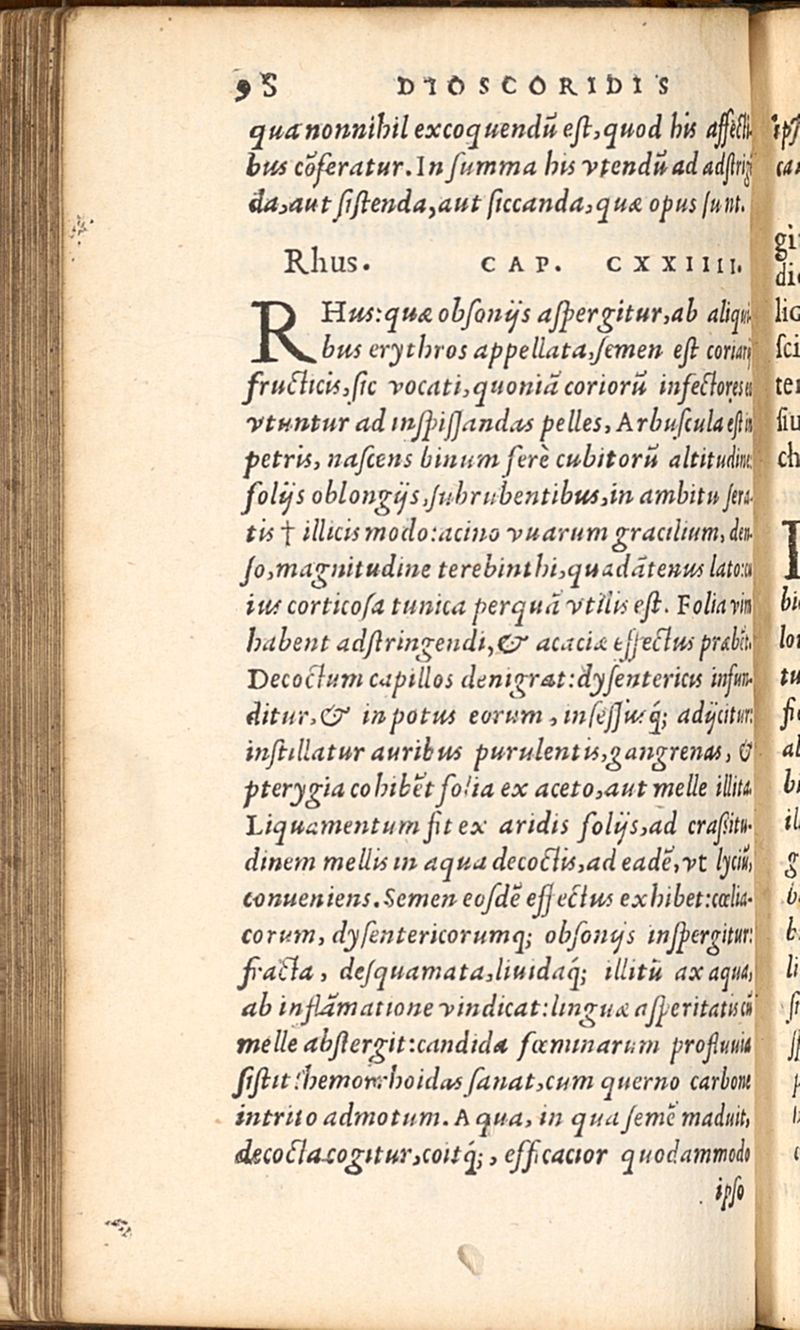 98 DIOSCORIDIS
qua nonnihil excoquendū est, quod his affecti-
bus cōferatur. In summa his vtendū ad adstringē
da, aut sistenda, aut siccanda, quæ opus sunt.
Rhus. CAP. CXXIIII.
RHus: quæ obsonijs aspergitur, ab aliqui-
bus erythros appellata, semen est coriarij
fructicis, sic vocati, quoniā coriorū infectores eo
vtuntur ad inspissandas pelles, Arbuscula est in
petris, nascens binum ferè cubitorū altitudine:
folijs oblongijs, subrubentibus, in ambitu serra-
tis † illicis modo: acino vuarum gracilium, den-
so, magnitudine terebinthi, quadātenus lato: cu
ius corticosa tunica perquā vtilis est. Folia vim
habent adstringendi, & acaciæ effectus præbēt.
Decoctum capillos denigrat: dysentericis infun-
ditur, & in potus eorum, insessusq́; adijcitur:
instillatur auribus purulentis, gangrenas, &
pterygia cohibēt folia ex aceto, aut melle illita.
Liquamentum fit ex aridis folijs, ad crassitu-
dinem mellis in aqua decoctis, ad eadē, vt lyciū,
conueniens. Semen eosdē effectus exhibet: cœlia-
corum, dysentericorumq; obsonijs inspergitur:
fracta, desquamata, liuidaq́; illitū ax aqua,
ab inflāmatione vindicat: linguæ asperitatis cū
melle abstergit: candida fœminarum profluuia
sistit: hemorrhoidas sanat, cum querno carbone
intrito admotum. Aqua, in qua semē maduit,
decocta cogitur, coitq́;, efficacior quodammodo
ipso